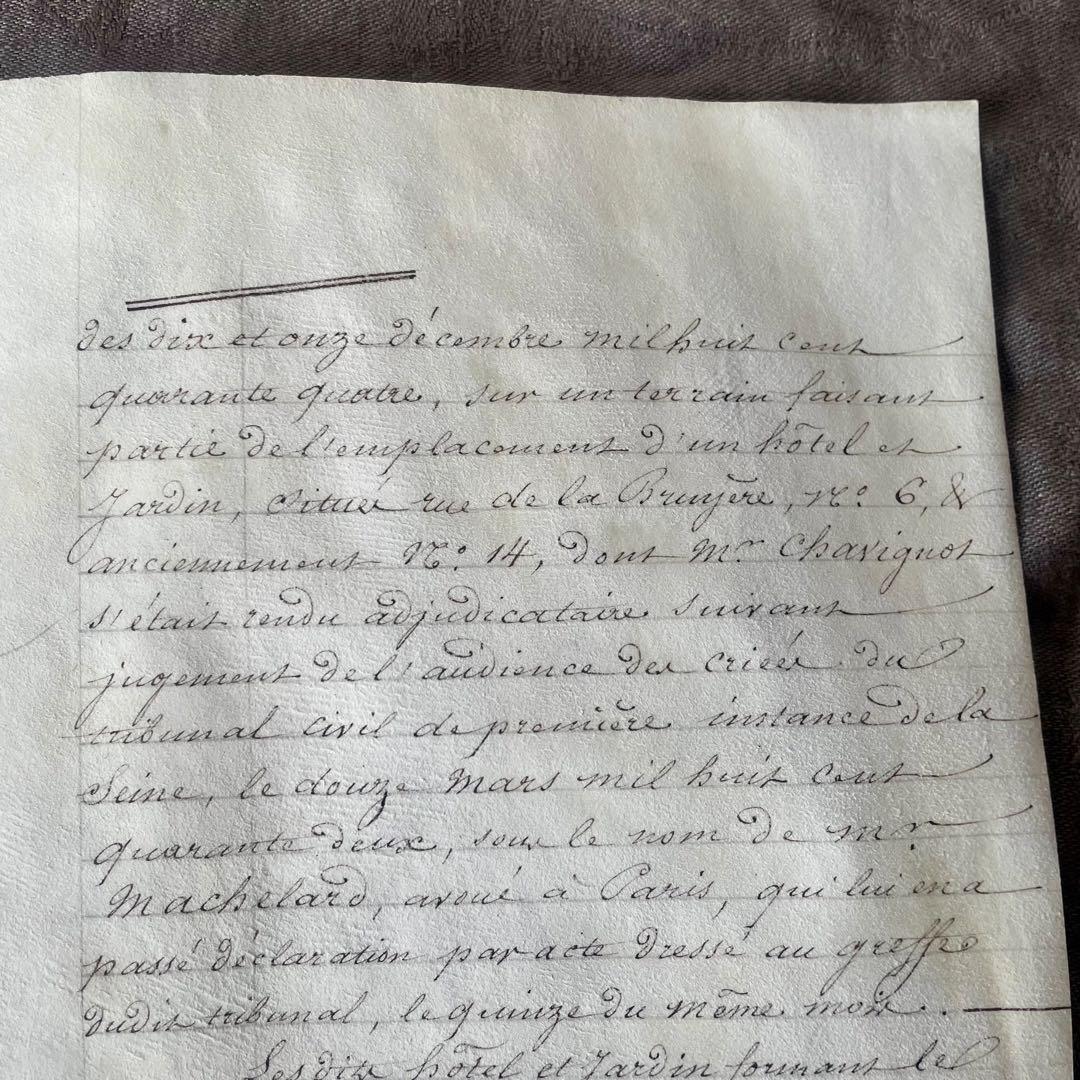 des dix et onze décembre mil huit cent
quarante quatre, sur un terrain faisant
partie de l'emplacement d'un hôtel et
Jardin, situés rue de la Bruyère, N.º 6, &
anciennement N.º 14, dont M.r Chavignot
s'était rendu adjudicataire suivant
jugement de l'audience des criées du
tribunal civil de première instance de la
Seine, le douze Mars mil huit cent
quarante deux, sous le nom de M.r
Machelard, avoué à Paris, qui lui en a
passé déclaration par acte dressé au greffe
dudit tribunal, le quinze du même mois.
Les dits hôtel et Jardin formant le